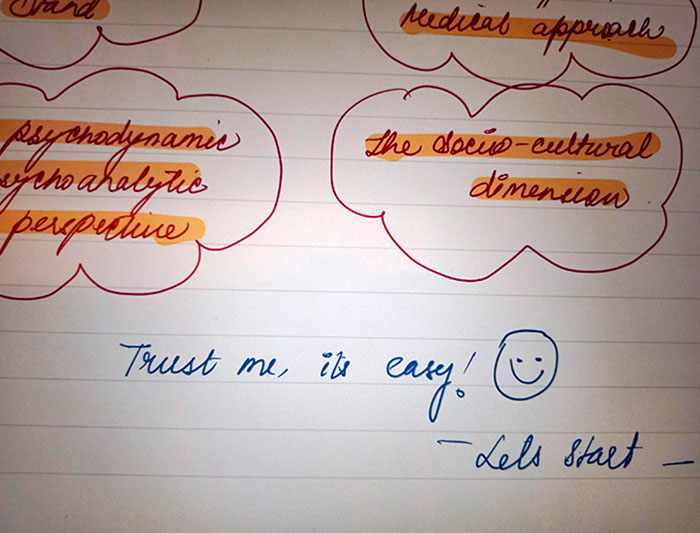 Medical approach
psychodynamic
sychoanalytic
perspective
the socio-cultural
dimension
Trust me, its easy!
- Lets start -